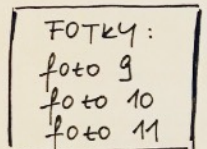 FOTKY:
foto 9
foto 10
foto 11